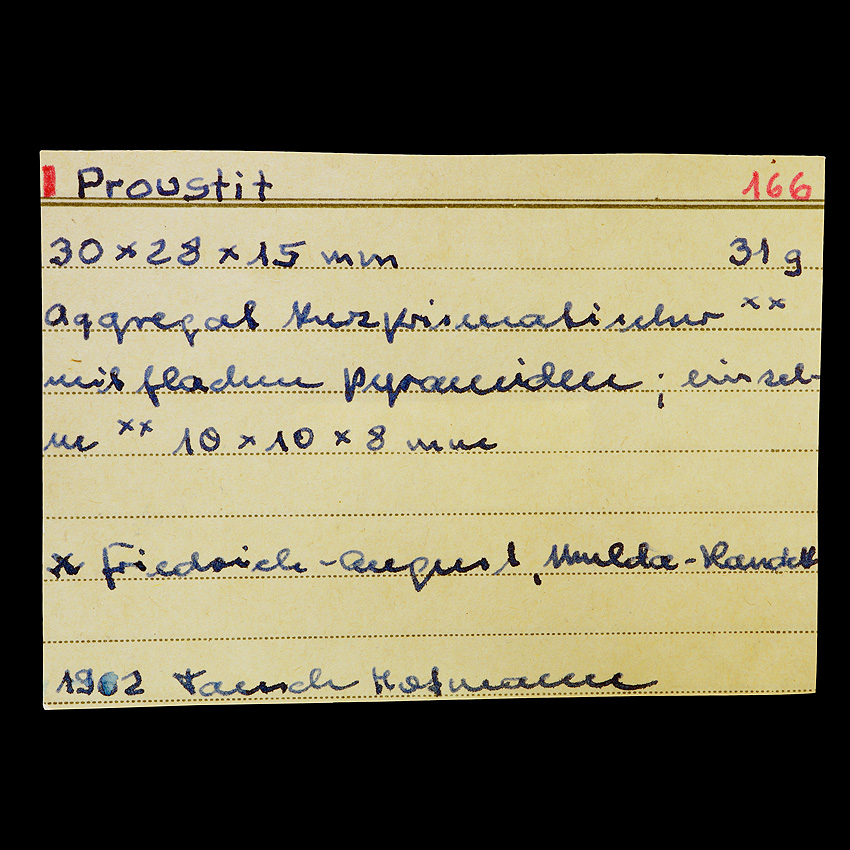 Proustit 166
30 × 28 × 15 mm 31 g
Aggregat kurzprismatischer xx
mit flachen Pyramiden; einzel-
ne xx 10 × 10 × 8 mm
Friedrich-August, Mulda-Randeck
Tausch Hofmann